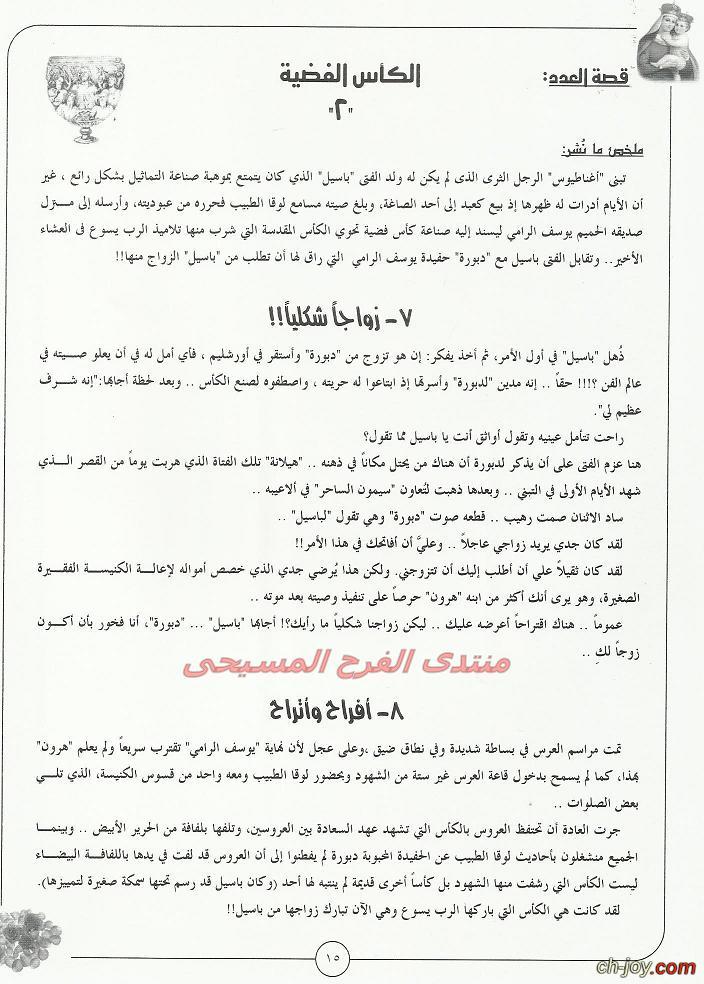 قصة العدد:
الكأس الفضية
"٢"
ملخص ما نُشر:
تبنى "أغناطيوس" الرجل الثرى الذى لم يكن له ولد الفتى "باسيل" الذي كان يتمتع بموهبة صناعة التماثيل بشكل رائع ، غير
أن الأيام أدرات له ظهرها إذ بيع كعبد إلى أحد الصاغة، وبلغ صيته مسامع لوقا الطبيب فحرره من عبوديته، وأرسله إلى منزل
صديقه الحميم يوسف الرامي ليسند إليه صناعة كأس فضية تحوي الكأس المقدسة التي شرب منها تلاميذ الرب يسوع فى العشاء
الأخير.. وتقابل الفتى باسيل مع "دبورة" حفيدة يوسف الرامي التي راق لها أن تطلب من "باسيل" الزواج منها!!
٧- زواجاً شكلياً!!
ذُهل "باسيل" في أول الأمر، ثم أخذ يفكر: إن هو تزوج من "دبورة" وأستقر في أورشليم ، فأي أمل له في أن يعلو صيته في
عالم الفن ؟!!! حقاً .. إنه مدين "لدبورة" وأسرتها إذ ابتاعوا له حريته ، واصطفوه لصنع الكأس .. وبعد لحظة أجابها:"إنه شرف
عظيم لي".
راحت تتأمل عينيه وتقول أواثق أنت يا باسيل مما تقول؟
هنا عزم الفتى على أن يذكر لدبورة أن هناك من يحتل مكاناً في ذهنه .. "هيلانة" تلك الفتاة الذي هربت يوماً من القصر الذي
شهد الأيام الأولى في التبني .. وبعدها ذهبت لتُعاون "سيمون الساحر" في ألاعيبه ..
ساد الاثنان صمت رهيب .. قطعه صوت "دبورة" وهي تقول "لباسيل" ..
لقد كان جدي يريد زواجي عاجلاً .. وعليَّ أن أفاتحك في هذا الأمر!!
لقد كان ثقيلاً علي أن أطلب إليك أن تتزوجني. ولكن هذا يُرضي جدي الذي خصص أمواله لإعالة الكنيسة الفقيرة
الصغيرة، وهو يرى أنك أكثر من ابنه "هرون" حرصاً على تنفيذ وصيته بعد موته ..
عموماً .. هناك اقتراحاً أعرضه عليك .. ليكن زواجنا شكلياً ما رأيك؟! أجابها "باسيل" ... "دبورة"، أنا فخور بأن أكون
زوجاً لكِ ..
منتدى الفرح المسيحى
٨- أفراح وأتراح
تمت مراسم العرس في بساطة شديدة وفي نطاق ضيق ،وعلى عجل لأن نهاية "يوسف الرامي" تقترب سريعاً ولم يعلم "هرون"
بهذا، كما لم يسمح بدخول قاعة العرس غير ستة من الشهود وبحضور لوقا الطبيب ومعه واحد من قسوس الكنيسة، الذي تلي
بعض الصلوات ..
جرت العادة أن تحتفظ العروس بالكأس التي تشهد عهد السعادة بين العروسين، وتلفها بلفافة من الحرير الأبيض .. وبينما
الجميع منشغلون بأحاديث لوقا الطبيب عن الحفيدة المحبوبة دبورة لم يفطنوا إلى أن العروس قد لفت في يدها باللفافة البيضاء
ليست الكأس التي رشفت منها الشهود بل كأساً أخرى قديمة لم ينتبه لها أحد (وكان باسيل قد رسم تحتها سمكة صغيرة لتمييزها).
لقد كانت هي الكأس التي باركها الرب يسوع وهي الآن تبارك زواجها من باسيل!!
١٥
ch-joy.com